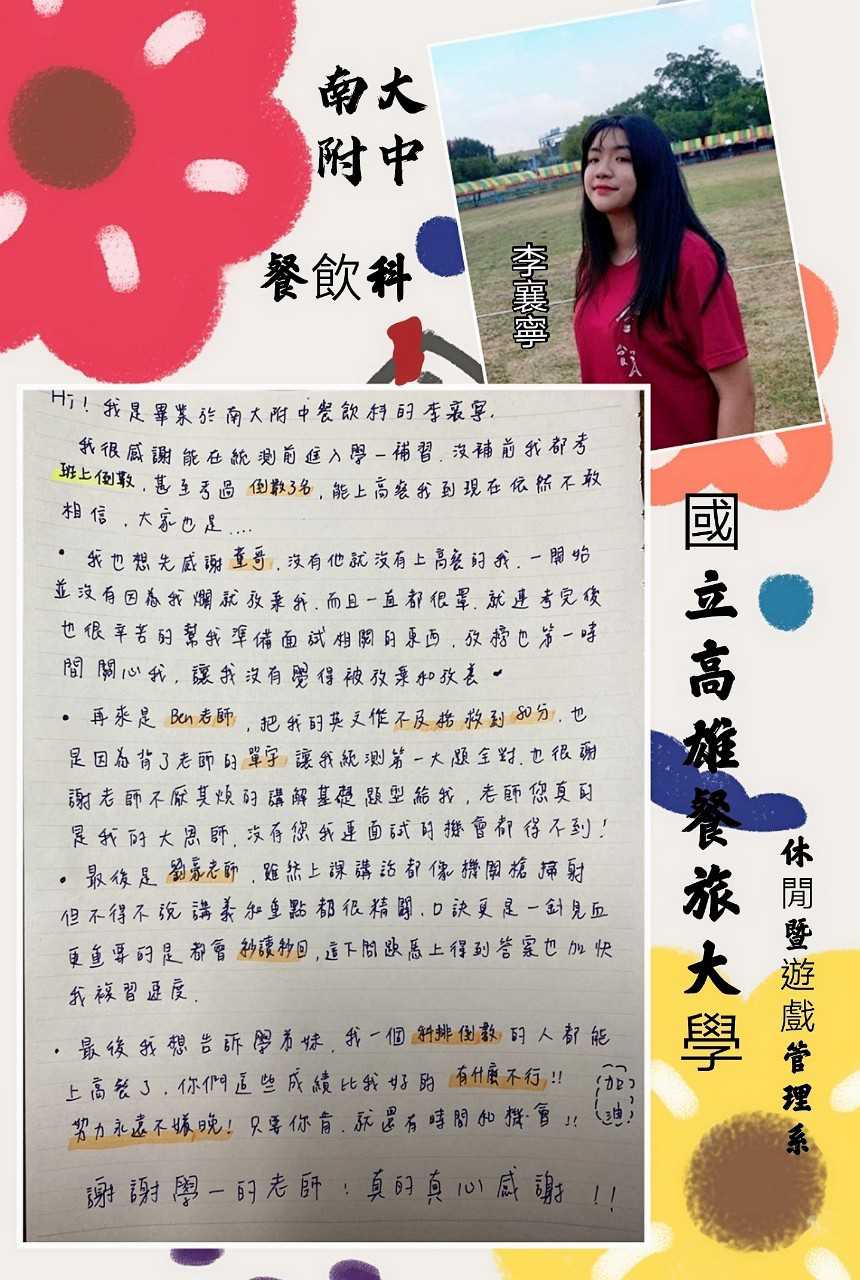 南大
附中
餐飲科
李襄寧
Hi! 我是畢業於南大附中餐飲科的李襄寧.
我很感謝能在統測前進入學一補習.沒補前我都考
班上倒數,甚至考過倒數3名,能上高餐我到現在依然不敢
相信,大家也是....
• 我也想先感謝董哥,沒有他就沒有上高餐的我.一開始
並沒有因為我爛就放棄我.而且一直都很罩.就連考完後
也很辛苦的幫我準備面試相關的東西.放榜也第一時
間關心我,讓我沒有覺得被放棄和放養
• 再來是Ben老師,把我的英文作不及格救到80分.也
是因為背了老師的單字讓我統測第一大題全對.也很謝
謝老師不厭其煩的講解基礎題型給我,老師您真的
是我的大恩師,沒有您我連面試的機會都得不到!
• 最後是劉豪老師.雖然上課講話都像機關槍掃射
但不得不說講義和重點都很精闢.口訣更是一針見血
更重要的是都會秒讀秒回,這下問題馬上得到答案也加快
我複習速度.
• 最後我想告訴學弟妹,我一個科排倒數的人都能
上高餐了,你們這些成績比我好的有什麼不行!!
努力永遠不嫌晚!只要你肯.就還有時間和機會!!
加油
謝謝學一的老師!真的真心感謝!!
國立高雄餐旅大學
休閒暨遊戲管理系